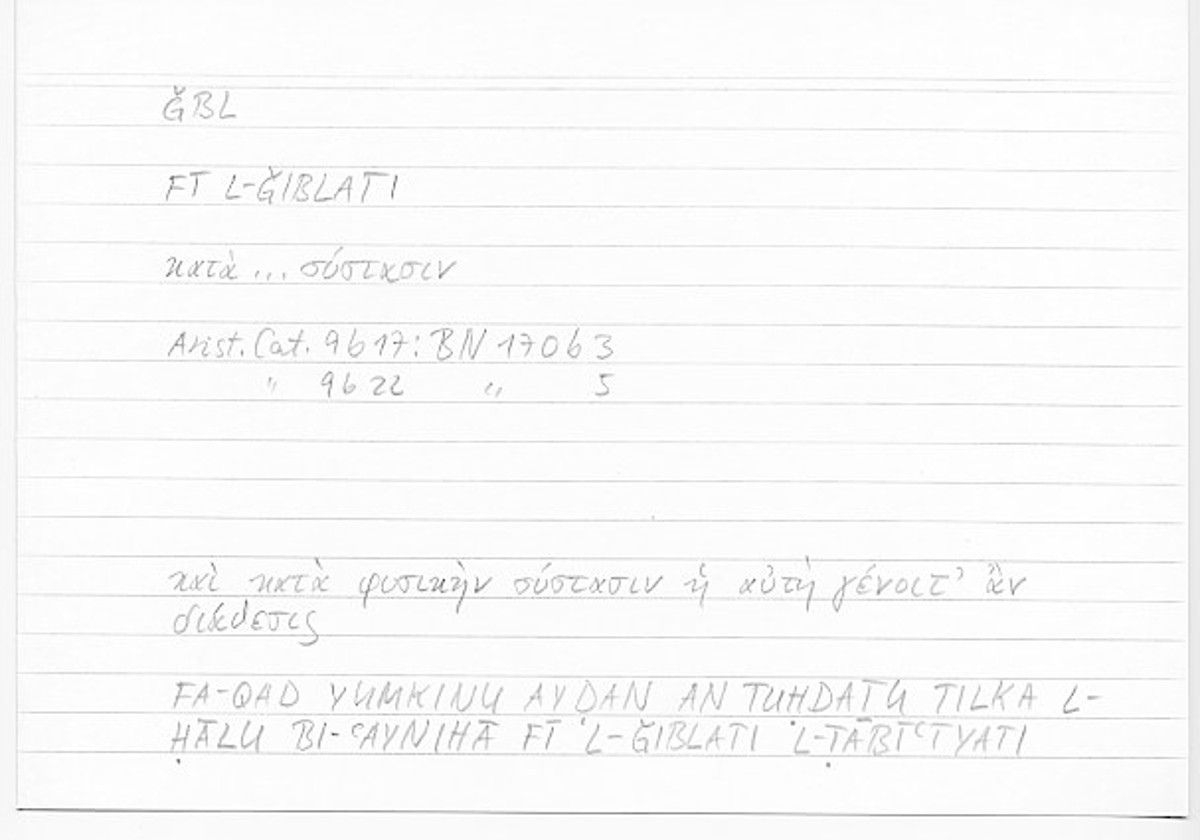 ǦBL
FĪ L-ǦIBLATI
κατὰ ... σύστασιν
Arist. Cat. 9b17: BN 170b3
" 9b22 " 5
καὶ κατὰ φυσικὴν σύστασιν ἡ αὐτὴ γένοιτ' ἂν
διάθεσις
FA-QAD YUMKINU AYḌAN AN TUḤDAṮU TILKA L-
ḤĀLU BI-ʿAYNIHĀ FĪ L-ǦIBLATI L-ṬABĪʿĪYATI